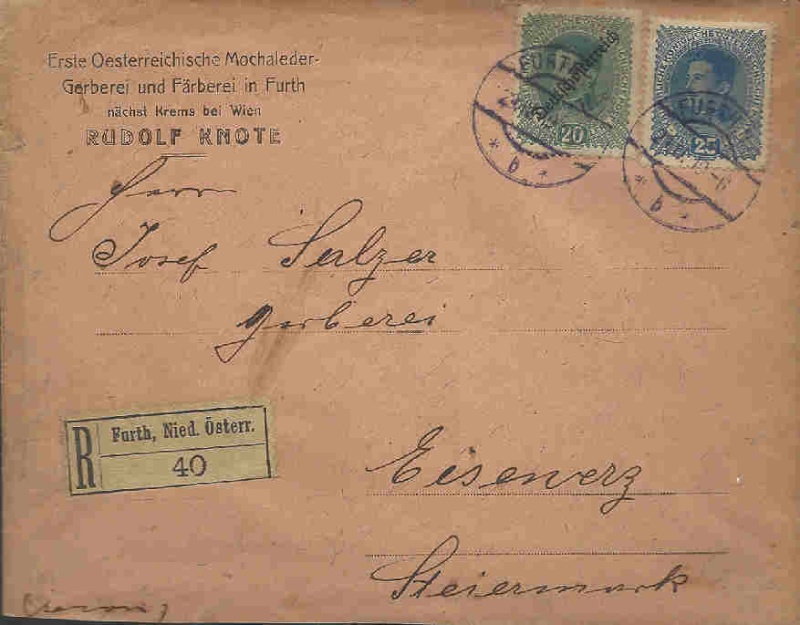 Erste Oesterreichische Mochaleder-
Gerberei und Färberei in Furth
nächst Krems bei Wien
RUDOLF KNOTE
Deutschösterreich
20
25
FURTH
* b *
FURTH
* b *
Herrn
Josef Salzer
Gerberei
R
Furth, Nied. Österr.
40
Eisenerz
Steiermark